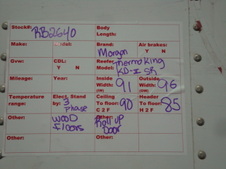 Stock#: RB2640
Body Length:
Make:
Brand: Morgan
Air brakes: Y N
Over: CBL: Y N
Reefer: Thermo King
Model: KD-II SR
Mileage:
Year:
Inside Width: 91
Outside Width: 96
Temperature range:
Elect. Stand by: 3 Phase
Ceiling To floor: 90
C 2 F
Header To floor: 85
H 2 F
Other:
Other: Wood floors
Other: Roll up Door
Other:
Other: